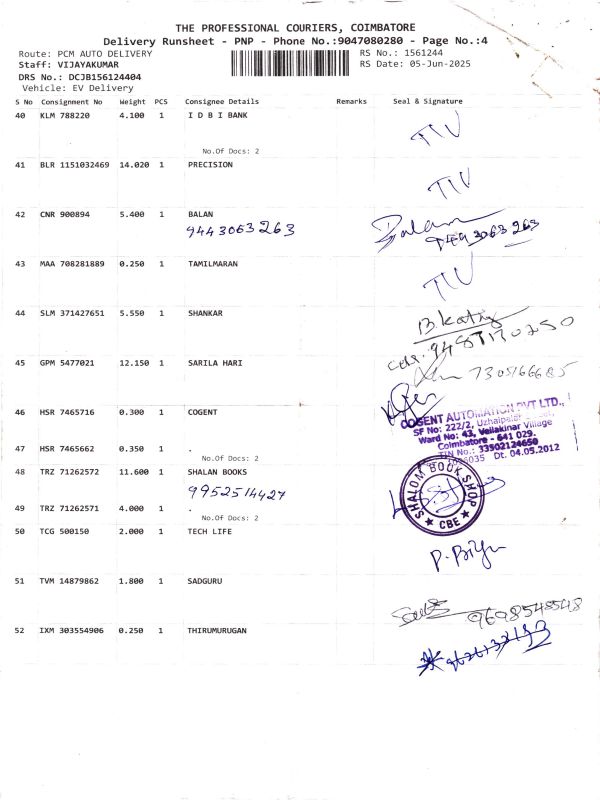 THE PROFESSIONAL COURIERS, COIMBATORE
Delivery Runsheet - PNP - Phone No.:9047080280 - Page No.:4
Route: PCM AUTO DELIVERY RS No.: 1561244
Staff: VIJAYAKUMAR RS Date: 05-Jun-2025
DRS No.: DCJB156124404
Vehicle: EV Delivery
S No Consignment No Weight PCS Consignee Details Remarks Seal & Signature
40 KLM 788220 4.100 1 I D B I BANK
No.Of Docs: 2
41 BLR 1151032469 14.020 1 PRECISION
42 CNR 900894 5.400 1 BALAN
9443063263 Balan
9443063263
43 MAA 708281889 0.250 1 TAMILMARAN
44 SLM 371427651 5.550 1 SHANKAR
45 GPM 5477021 12.150 1 SARILA HARI
7305166685
46 HSR 7465716 0.300 1 COGENT
COGENT AUTOMATION PVT LTD.,
SF No: 222/2,
Ward No: 43, Vellakinar Village
Coimbatore - 641 029.
TIN No.: 33502124650
Dt. 04.05.2012
47 HSR 7465662 0.350 1 .
No.Of Docs: 2
48 TRZ 71262572 11.600 1 SHALAN BOOKS
9952514427
SHALOM BOOK SHOP
★ CBE ★
49 TRZ 71262571 4.000 1 .
No.Of Docs: 2
50 TCG 500150 2.000 1 TECH LIFE
51 TVM 14879862 1.800 1 SADGURU
9698548548
52 IXM 303554906 0.250 1 THIRUMURUGAN